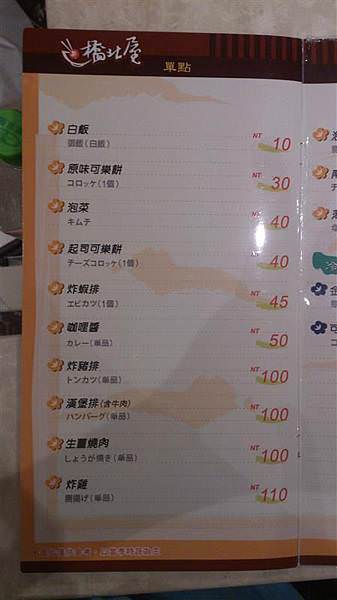 橋北屋
單點
白飯
御飯(白飯)
NT 10
原味可樂餅
コロッケ(1個)
NT 30
泡菜
キムチ
NT 40
起司可樂餅
チーズコロッケ(1個)
NT 40
炸蝦排
エビカツ(1個)
NT 45
咖哩醬
カレー(単品)
NT 50
炸豬排
トンカツ(単品)
NT 100
漢堡排(含牛肉)
ハンバーグ(単品)
NT 100
生薑燒肉
しょうが焼き(単品)
NT 100
炸雞
唐揚げ(単品)
NT 110